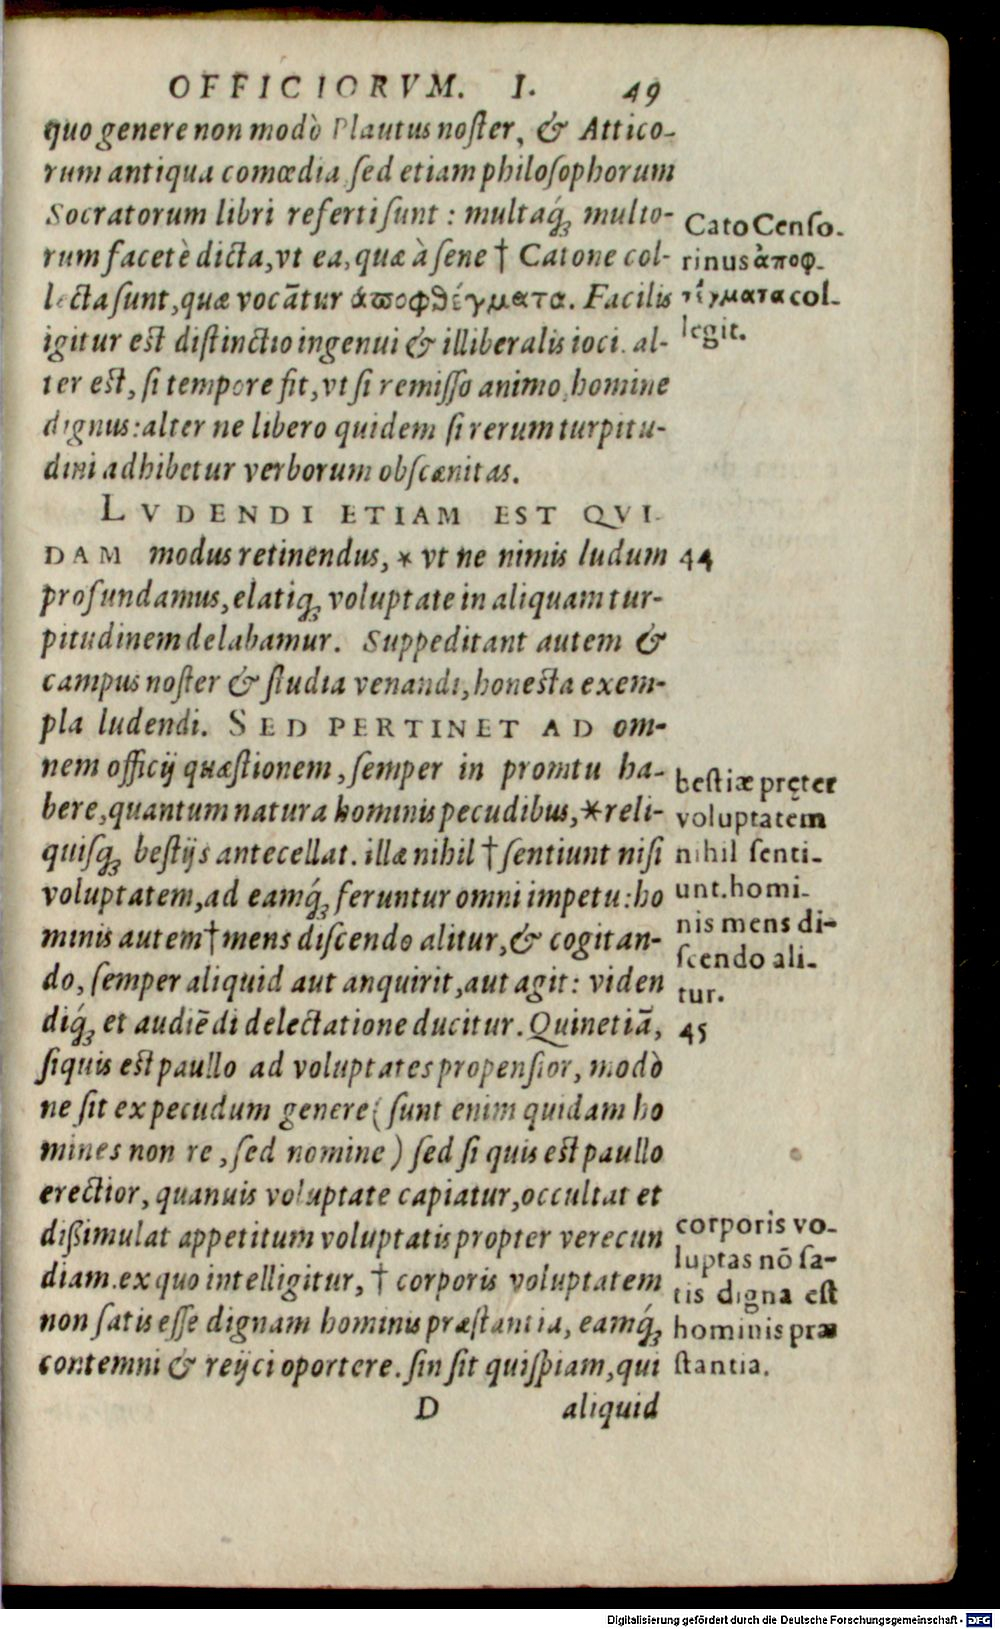 OFFICIORVM. I. 49
quo genere non modò Plautus noſter, & Attico-
rum antiqua comœdia ſed etiam philoſophorum
Socratorum libri referti ſunt : multaq́; multo-
rum facetè dicta, vt ea, quæ à ſene † Catone col-
lecta ſunt, quæ vocātur ἀποφθέγματα. Facilis
igitur est diſtinctio ingenui & illiberalis ioci. al-
ter est, ſi tempore fit, vt ſi remiſſo animo, homine
dignus: alter ne libero quidem ſi rerum turpitu-
dini adhibetur verborum obſcænitas.
LVDENDI ETIAM EST QVI
DAM modus retinendus, * vt ne nimis ludum
profundamus, elatiq; voluptate in aliquam tur-
pitudinem delabamur. Suppeditant autem &
campus noſter & ſtudia venandi, honesta exem-
pla ludendi. SED PERTINET AD om-
nem officij quæſtionem, ſemper in promtu ha-
bere, quantum natura hominis pecudibus, * reli-
quiſq; beſtijs antecellat. illæ nihil † ſentiunt niſi
voluptatem, ad eamq́; feruntur omni impetu: ho
minis autem † mens diſcendo alitur, & cogitan-
do, ſemper aliquid aut anquirit, aut agit: viden
diq́; et audiēdi delectatione ducitur. Quinetiā,
ſiquis est paullo ad voluptates propenſior, modò
ne ſit ex pecudum genere (ſunt enim quidam ho
mines non re, ſed nomine) ſed ſi quis est paullo
erectior, quanuis voluptate capiatur, occultat et
dißimulat appetitum voluptatis propter verecun
diam. ex quo intelligitur, † corporis voluptatem
non ſatis eſſe dignam hominis præſtantia, eamq́;
contemni & reijci oportere. ſin ſit quiſpiam, qui
D aliquid
Cato Cenſo-
rinus ἀποφ-
τέγματα col-
legit.
44
beſtiæ pręter
voluptatem
nihil ſenti-
unt. homi-
nis mens di-
ſcendo ali-
tur.
45
corporis vo-
luptas nō ſa-
tis digna eſt
hominis præ
ſtantia.
Digitalisierung gefördert durch die Deutsche Forschungsgemeinschaft - DFG